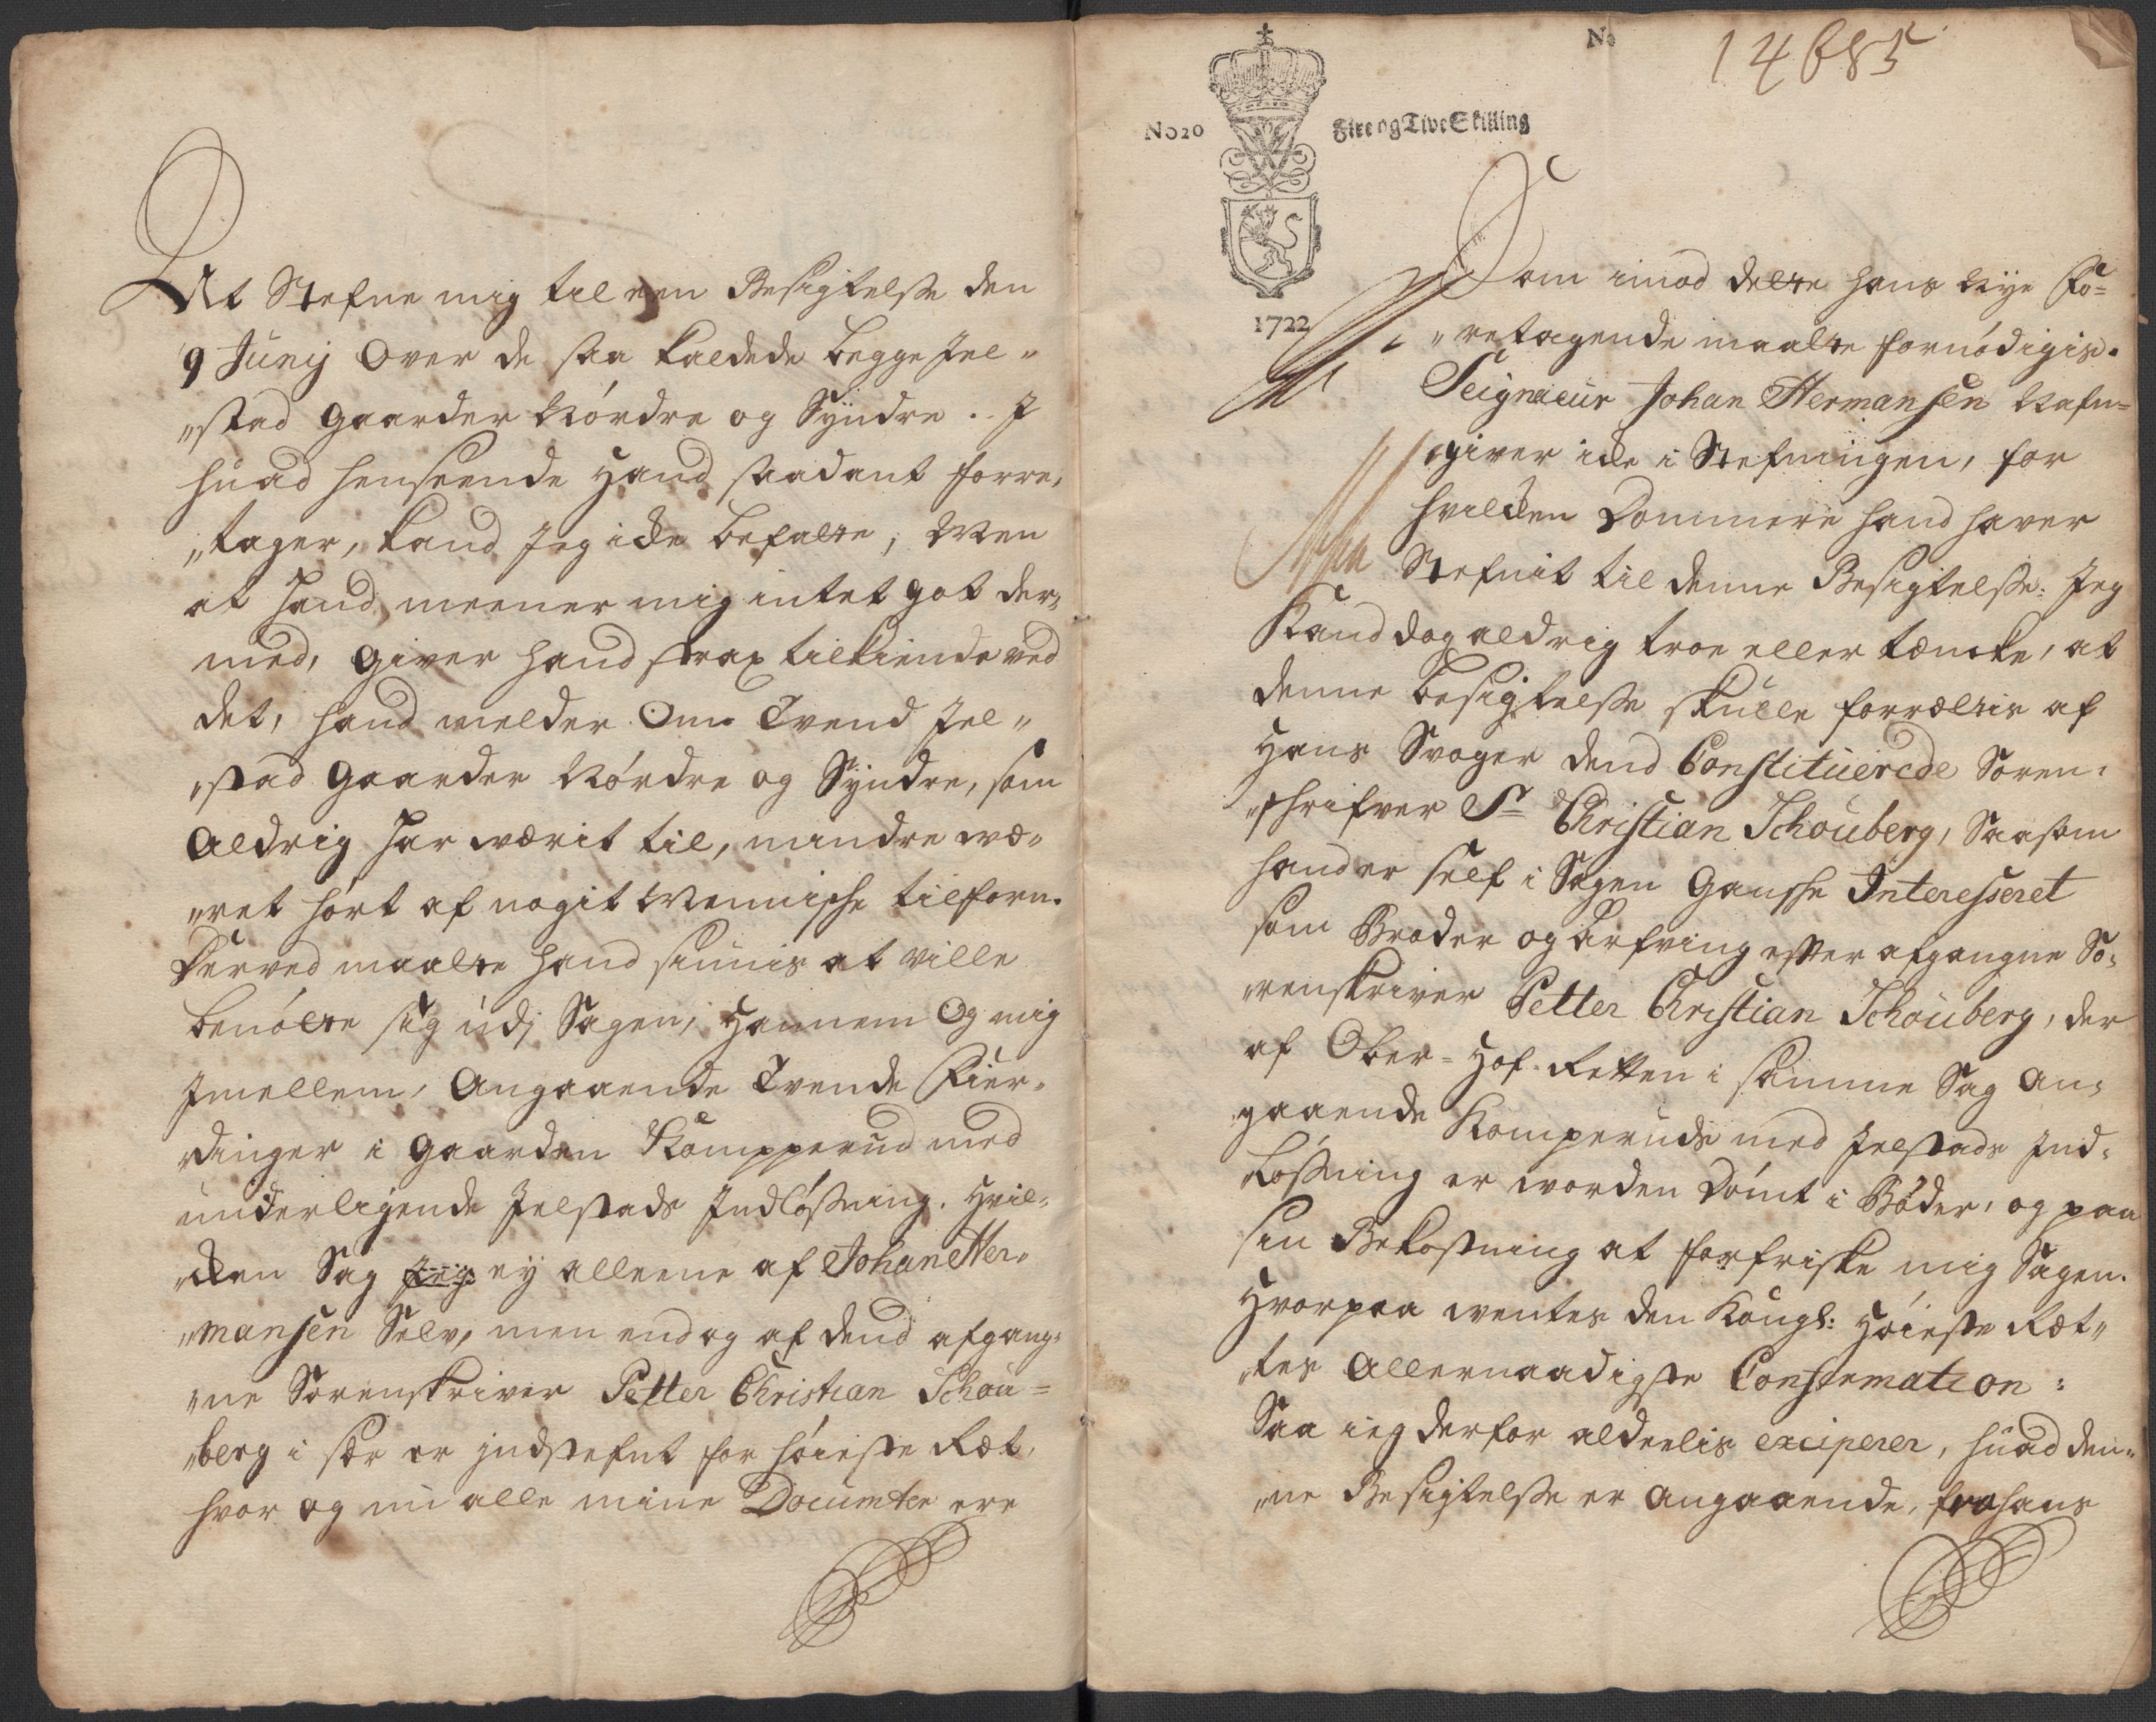 At Stefne mig til een Besigtelsse den
9 Junij Over de saa kaldede begge Jel„
„stad Gaarder Nórdre og Syndre. I
huad henseende Hand saadant forre„
„tager, kand Jeg icke befatte, Men
at Hand meener mig intet got der„
med, Giver hand strax tilkiende ved
det, hand melder Om Tvend Jel„
„stad Gaarder Nórdre og Syndre, som
Aldrig har wærit til, mindre wæ„
„ret hórt af nogit Menniske tilforn.
Derved maatte hand siunis at ville
benótte sig udj Sagen, Hannem Og mig
Jmellem, Angaaende Tvende Fier„
„dinger i Gaarden Kompperud med
underligende Jelstads Jndlósning. Hvil„
„cken Sag Jeg ey alleene af Johan Her„
„mansen Selv, men endog af dend afgang„
„ne Sorenskriver Petter Christian Schou=
„berg i sær er jndstefnt for hóieste Ræt,
hvor og nu alle mine Documter ere
No
14685
No 20
Fire og Tive Skilling
1722
Som imod dette hans Nye Fo=
„retagende maatte fornódigis.
Seigneur Johan Hermansen Nafn=
„giver icke i Stefningen, for
hvilcken Dommere hand haver
Stefnit til denne Besigtelsse: Jeg
Kand dog aldrig troe eller tæncke, at
denne besigtelsse skulle forrættis af
Hans Svoger dend Constituerede Soren„
„schrifver Sr Christian Schouberg, Saasom
hand er self i Sagen Gansche Interesseret
som Broder og Arfving efter afgangne So„
„renskriver Petter Christian Schouberg, der
af Ober=Hof-Retten i samme Sag an„
gaaende Komperuds med Jelstads Jnd„
lósning er worden Dómt i Bóder, og paa
sin Bekostning at forfriske mig Sagen.
Hvorpaa wentes den Kongl: Hóieste Ræt„
„tes Allernaadigste Confirmation:
Saa ieg derfor aldeelis exciperer, huad den„
„ne Besigtelsse er Angaaende, fra hans